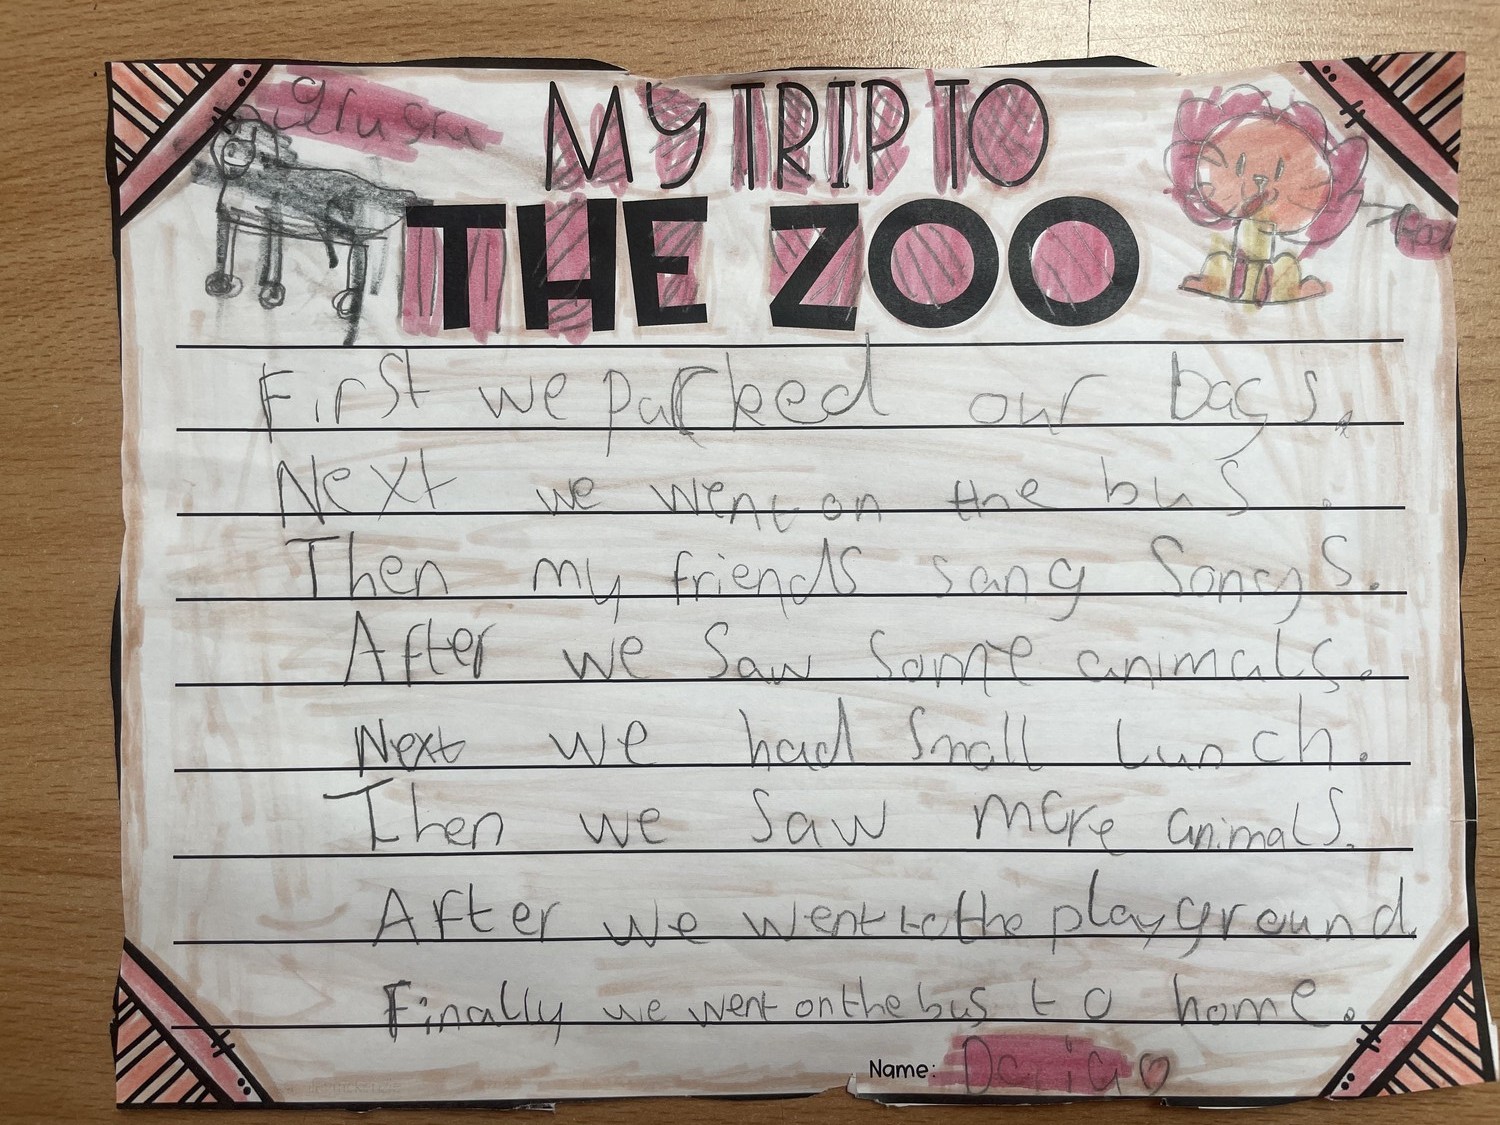 MY TRIP TO
THE ZOO
First we packed our bags.
Next we went on the bus.
Then my friends sang songs.
After we saw some animals.
Next we had small lunch.
Then we saw more animals.
After we went to the playground
Finally we went on the bus to home.
Name: Daria